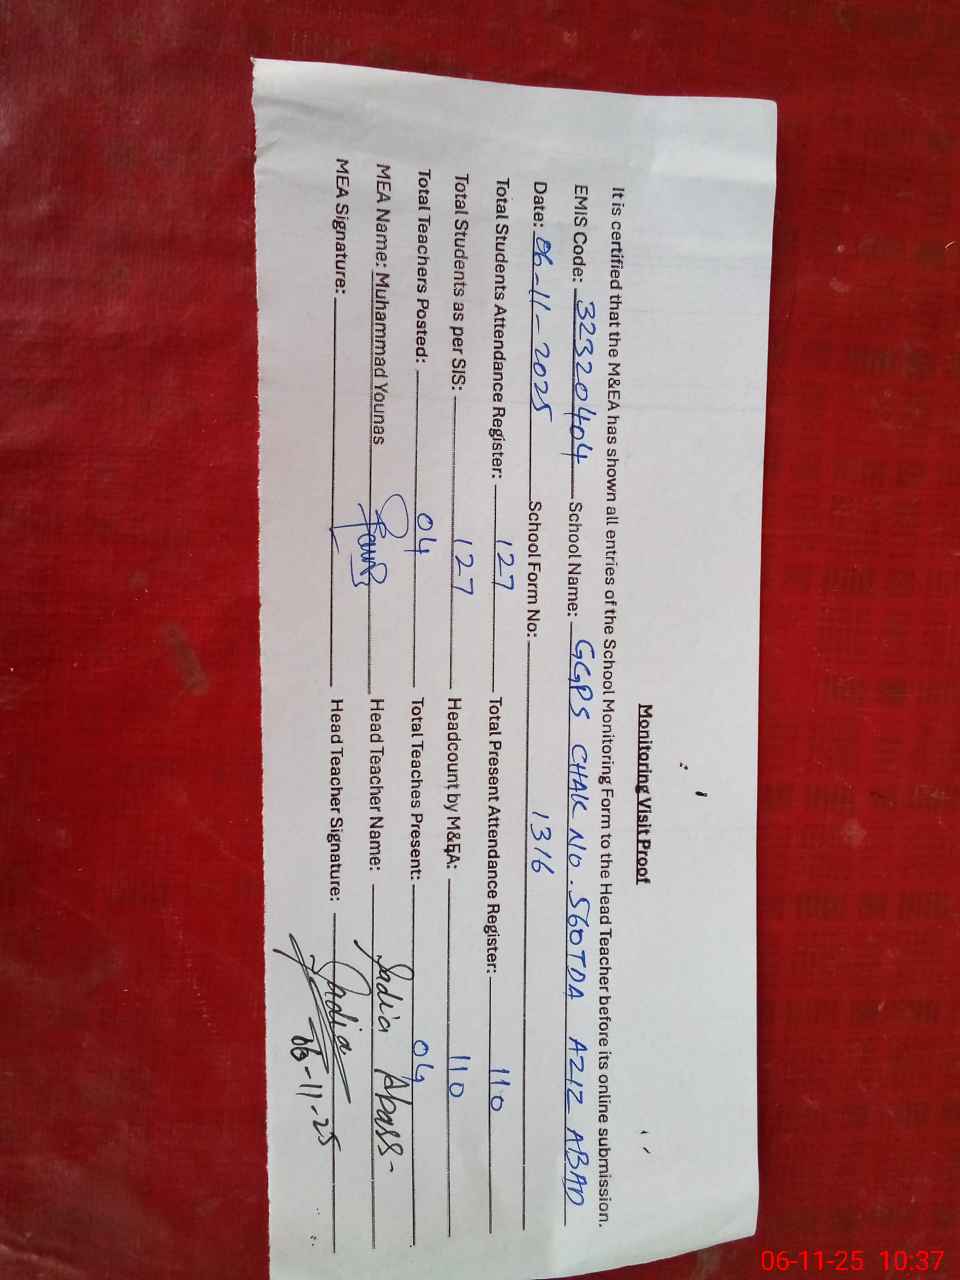 Monitoring Visit Proof
It is certified that the M&EA has shown all entries of the School Monitoring Form to the Head Teacher before its online submission.
EMIS Code: 32320404 School Name: GGPS CHAK NO. 560TDA AZIZ ABAD
Date: 06-11-2025 School Form No: 1316
Total Students Attendance Register: 127 Total Present Attendance Register: 110
Total Students as per SIS: 127 Headcount by M&EA: 110
Total Teachers Posted: 04 Total Teaches Present: 04
MEA Name: Muhammad Younas Head Teacher Name: Sadia Abass-
MEA Signature: Head Teacher Signature: Sadia
06-11-25
06-11-25 10:37